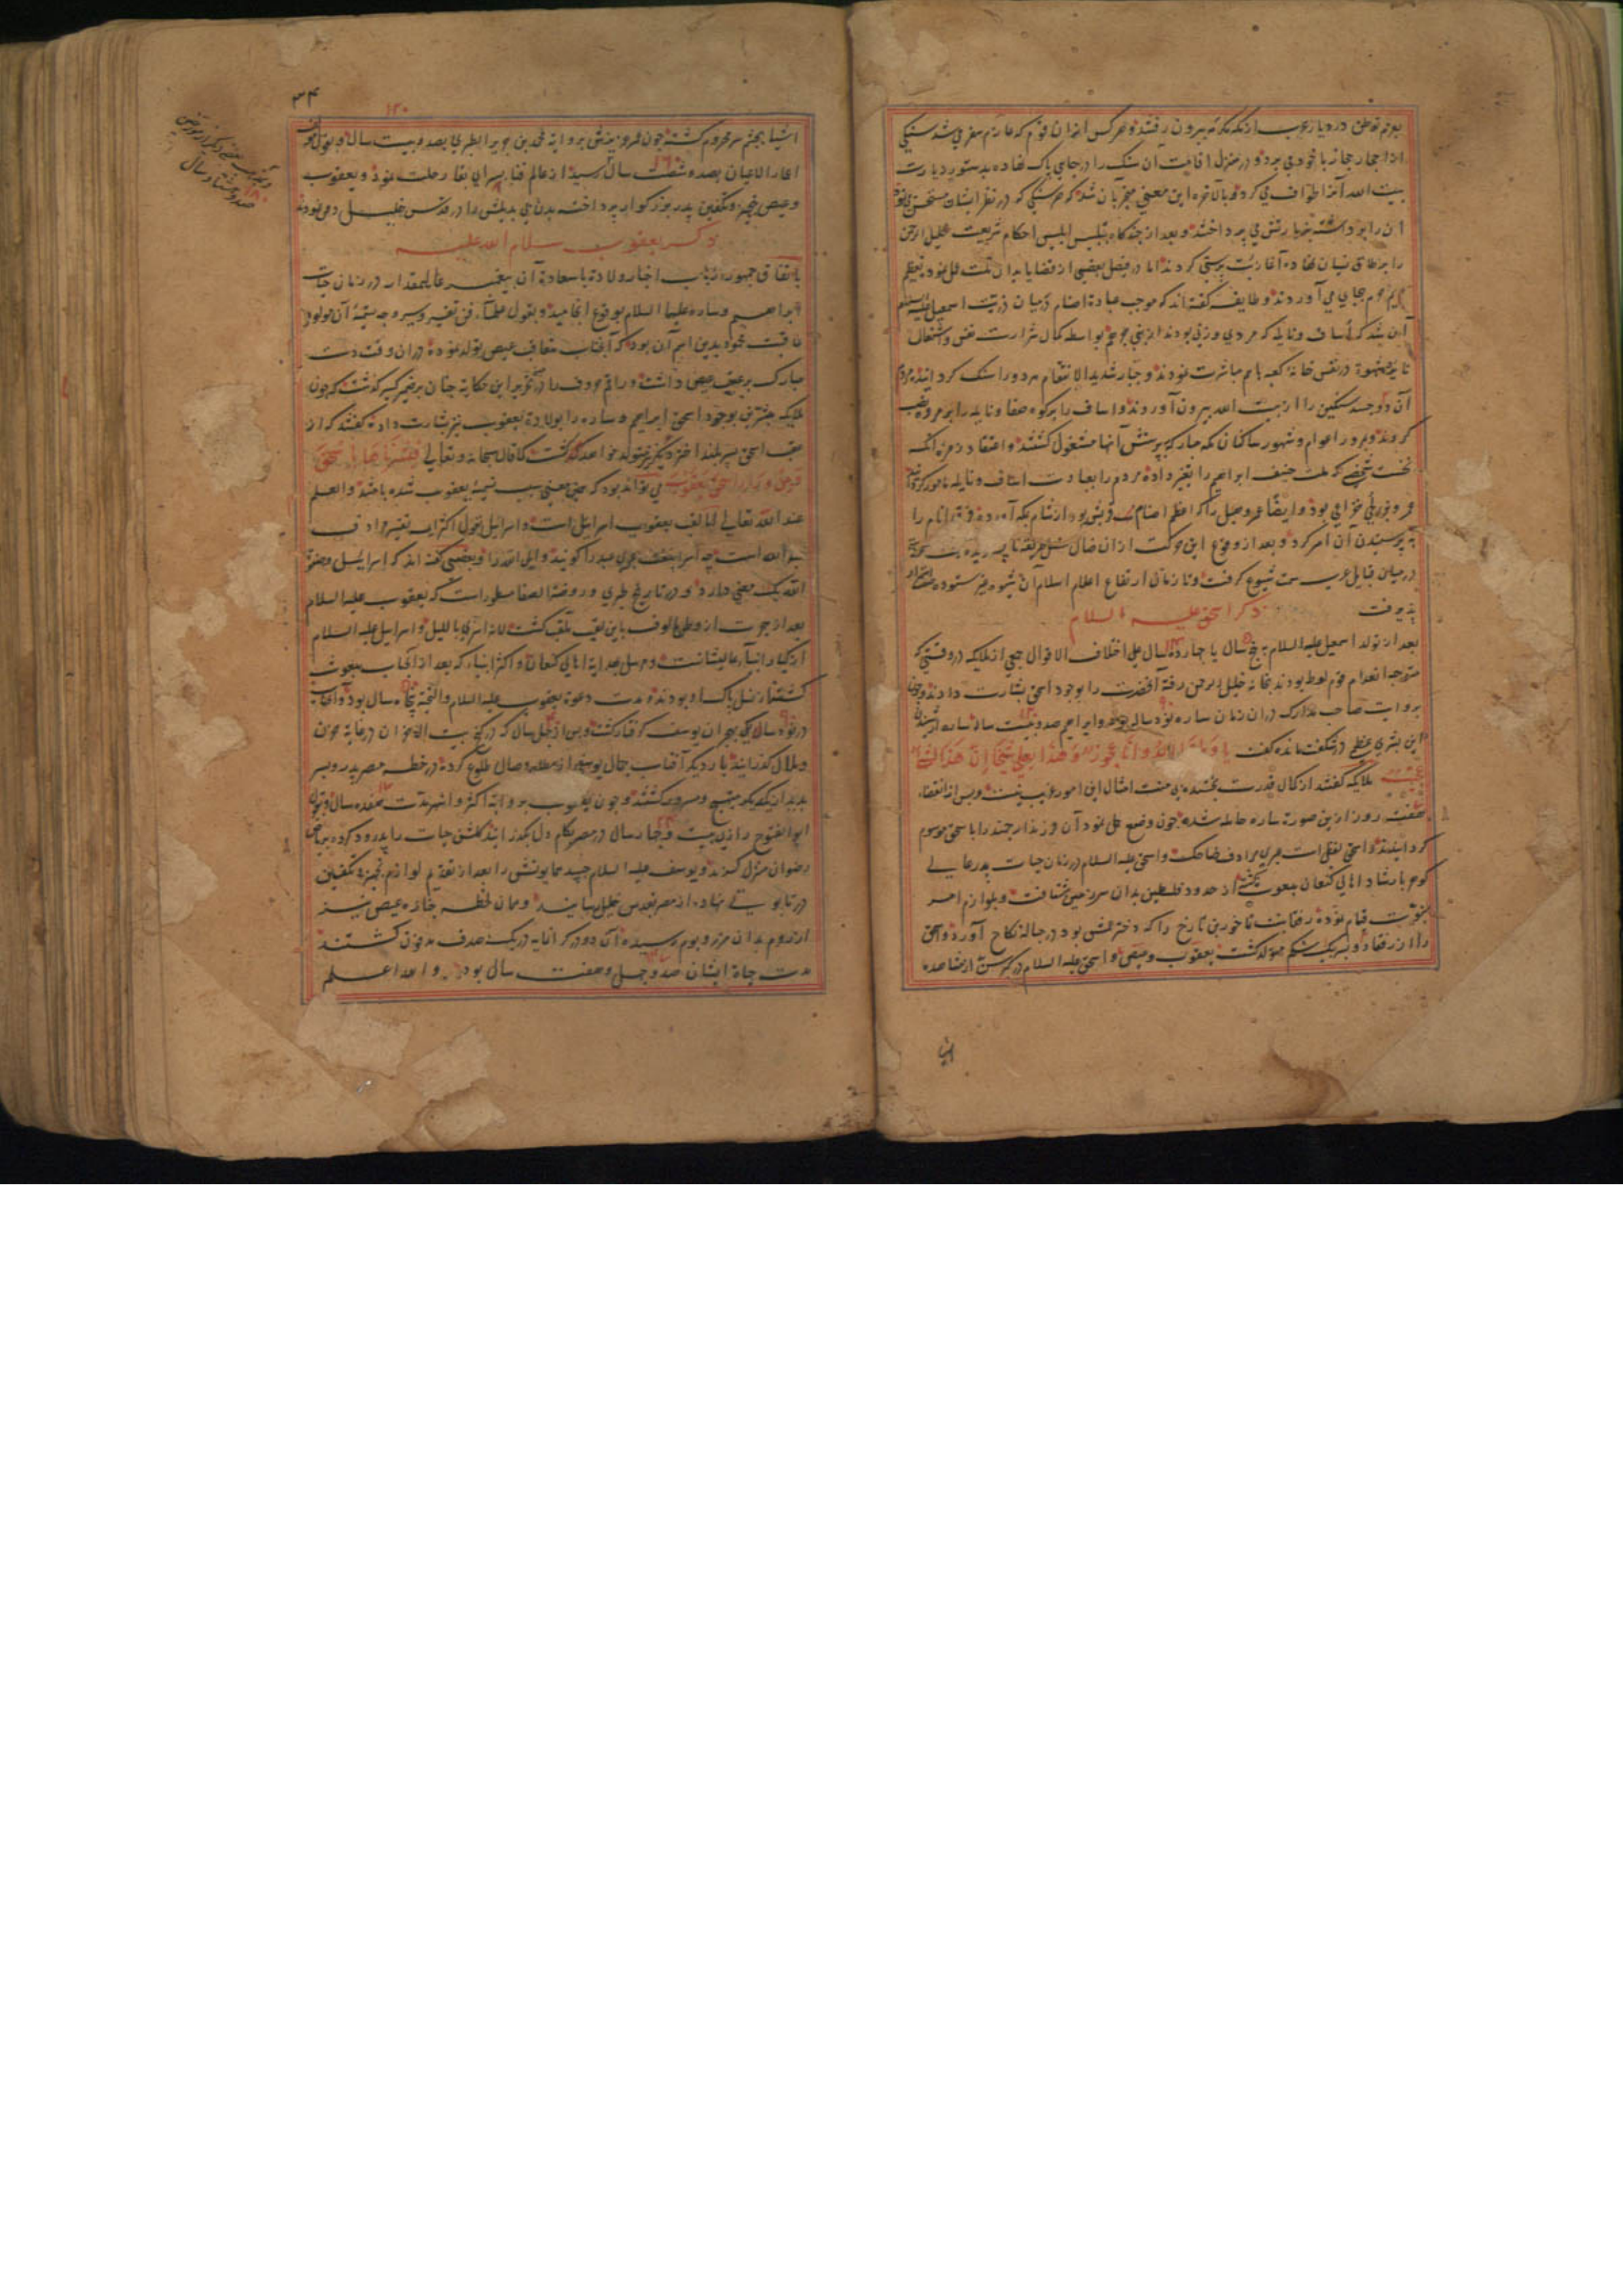 بعزم توطن در دیار عرب از مکه مکرمه بیرون رفتند و هر کس از ان قوم که عازم سفری شد سنکی
از احجار حجاز با خود می برد و در منزل اقامت ان سنک را در جای پاک نهاده بدستور زیارت
بیت الله آنرا طواف می کرد و بالاخره این معنی منجر بان شد که هر سنکی که در نظر ایشان مستحسن نمود
ان را برداشته به پرستش می پرداختند و بعد از چندکاه بتلبیس ابلیس احکام شریعت خلیل الرحمن
را بر طاق نسیان نهاده آغاز بت پرستی کردند اما در فیصل بعضی از قضایا بدان ملت عمل نموده تعظیم
حرم بجای می آوردند و طایفه کفته اند که موجب عبادة اصنام درمیان ذریت اسمعیل علیه السلام
آن شد که اساف و نایله که مردی و زنی بودند از بنی جرهم بواسطه کمال شرارت نفس و اشتعال
نایره شهوة در نفس خانه کعبه با هم مباشرت نمودند و جبار شدید الانتقام هر دو را سنک کردانید
آن دو جسد سنکین را از بیت الله بیرون آوردند و اساف را بر کوه صفا و نایله را بر مروه نصب
کردند و بمرور اعوام و شهور ساکنان مکه مبارکه بپرستش آنها مشغول کشتند و اعتقاد زمره انکه
نخست شخصی که ملت حنیف ابراهیم را تغییر داده مردم را بعبادت اساف و نایله مامور کردانید
عمرو بن لحی خزاعی بود و ایضا عمرو هبل را که اعظم اصنام قریش بود از شام بمکه آورد و فرق انام را
به پرستیدن آن امر کرد و بعد از وقوع این حرکت از ان ضال مضل طریقه ناپسندیده
درمیان قبایل عرب سمت شیوع کرفت و تا زمان ارتفاع اعلام اسلام آن شیوه غیر ستوده
پذیرفت
ذکر اسحق علیه السلام
بعد از تولد اسمعیل علیه السلام به پنج سال یا چهارده سال علی اختلاف الاقوال جمعی از ملایکه در وقتی که
متوجه انعدام قوم لوط بودند بخانه خلیل الرحمن رفته آنحضرت را بوجود اسحق بشارت دادند و
بروایت صاحب مدارک در ان زمان ساره نود ساله بود و ابراهیم صد و بیست ساله ساره از شنیدن
این بشری عظمی در شکفت مانده کفت یا ویلتی ءالد وانا عجوز وهذا بعلی شیخا ان هذا لشیء
عجیب ملایکه کفتند از کمال قدرت بخشنده بی منت امثال این امور غریب نیست و پس از انقضاء
هفت روز ازین صورة ساره حامله شده چون وضع حمل نمود آن فرزند ارجمند را باسحق موسوم
کردانیدند و اسحق لفظی است عبری مرادف ضاحک و اسحق علیه السلام در زمان حیات پدر عالی
کوهر بارشاد اهالی کنعان مبعوث کشته از حدود فلسطین بدان سرزمین شتافت و بلوازم امر
نبوت قیام نموده رفقا بنت ناحور بن تارخ را که دختر عمش بود در حباله نکاح آورد و اسحق
را از رفقا دو پسر بیک شکم متولد کشت یعقوب و عیص و اسحق علیه السلام در کبر سن از مشاهده
اشیا
۳۴
۱۲۰
اشیا بچشم سر محروم کشت چون عمر عزیزش بروایة محمد بن جریر الطبری بصد و بیست سال و بقول
اعیان بصد و شصت سال رسید از عالم فنا بسرای بقا رحلت نمود و یعقوب
و عیص بتجهیز و تکفین پدر بزرکوار پرداخته بدن بی بدیلش را در قدس خلیل دفن نمودند
و بقول بعضی دیکر از مورخین
۱۸۰
صد و هشتاد سال
ذکر یعقوب سلام الله علیه
باتفاق جمهور ارباب اخبار ولادة باسعادة آن پیغمبر عالیمقدار در زمان حیات
ابراهیم و ساره علیهما السلام بوقوع انجامید و بقول علماء فن تفسیر و سیر وجه تسمیة آن مولود
عاقبت محمود بدین اسم آن بود که آنجناب متعاقب عیص تولد نموده در ان وقت دست
مبارک بر عقب عیص داشت و راقم حروف را در تحریر این حکایة چنان بر ضمیر کسیر کذشت که چون
ملایکه مبشرین بوجود اسحق ابراهیم و ساره را بولادة یعقوب نیز بشارت داده کفتند که از
عقب اسحق پسر بلند اختر دیکر متولد خواهد کشت کما قال سبحانه و تعالی فبشرناها باسحق
ومن وراء اسحق یعقوب می تواند بود که همین معنی سبب تسمیه یعقوب شده باشد والعلم
عند الله تعالی لقب یعقوب اسرائیل است و اسرائیل بقول اکثر ارباب تفسیر مرادف
عبد الله است چه اسرا بلغت عبری عبد را کویند و ایل الله را و بعضی کفته اند که اسرائیل و صفوة
الله یک معنی دارد و در تاریخ طبری و روضة الصفا مسطور است که یعقوب علیه السلام
بعد از هجرت از وطن مالوف باین لقب ملقب کشت لانه اسری باللیل و اسرائیل علیه السلام
از کبار انبیاء عالیشانست و مرسل بهدایة اهالی کنعان و اکثر انبیاء که بعد از آنجناب مبعوث
کشتند از نسل پاک او بودند و مدت دعوة یعقوب علیه السلام والتحیة پنجاه سال بود و آنجناب
در نود سالکی بهجران یوسف کرفتار کشت و پس از چهل سال که در کنج بیت الاحزان در غایة حزن
و ملال کذرانید بار دیکر آفتاب جمال یوسفی از مطلع وصال طلوع کرد و در خطه مصر پدر و پسر
بدیدار یکدیکر مبتهج و مسرور کشتند و چون یعقوب بروایة اکثر و اشهر مدت هفده سال و بقول
ابو الفتوح رازی بیست و چهار سال در مصر بکام دل بکذرانید کلشن حیات را پدرود کرده بریاض
رضوان منزل کزید و یوسف علیه السلام جسد همایونش را بعد از تقدیم لوازم تجهیز و تکفین
در تابوتی نهاده از مصر بقدس خلیل رسانید و همان لحظه جنازه عیص نیز
از روم بدان مرز و بوم رسیده آن دو در کرانمایه در یک صدف مدفون کشتند
مدت حیاة ایشان صد و چهل و هفت سال بود والله اعلم